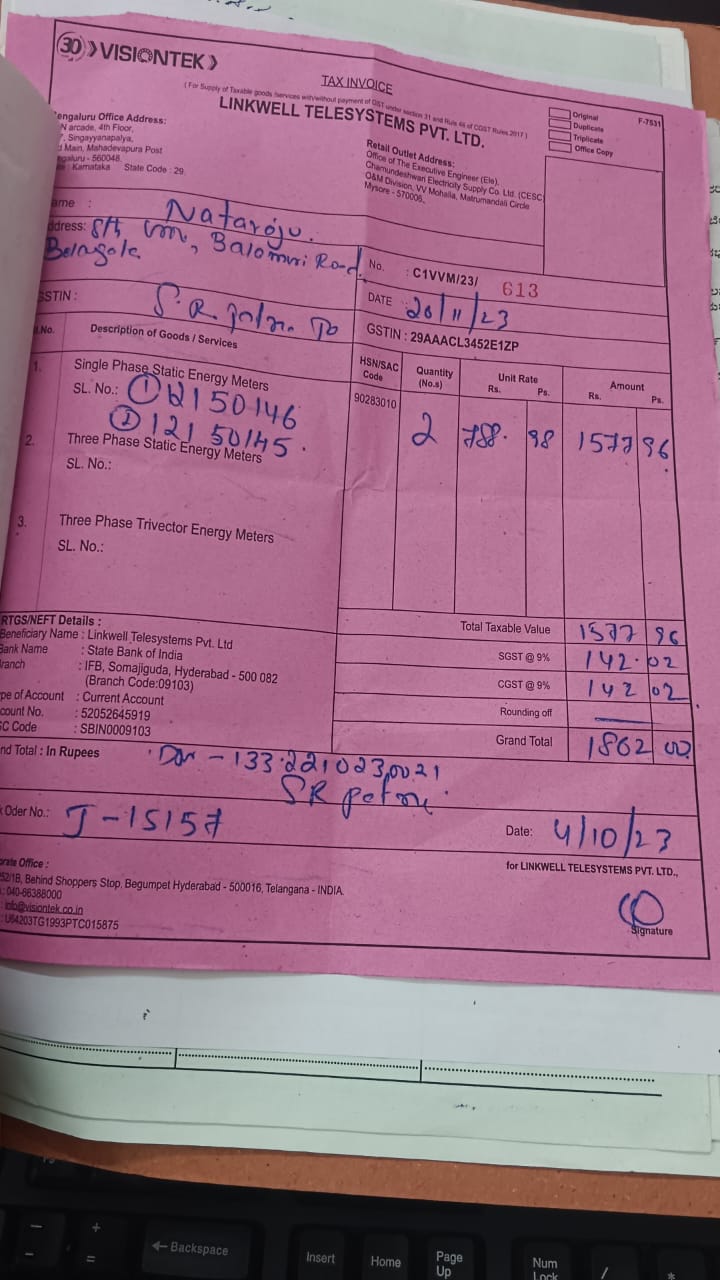 30 VISIONTEK
TAX INVOICE
( For Supply of Taxable goods /services with/without payment of GST under section 31 and Rule 46 of CGST Rules 2017 )
LINKWELL TELESYSTEMS PVT. LTD.
Original
Duplicate
Triplicate
Office Copy
F-7531
engaluru Office Address:
N arcade, 4th Floor,
Singayyanapalya,
Main, Mahadevapura Post
galuru - 560048.
Karnataka State Code : 29
Retail Outlet Address:
Office of The Executive Engineer (Ele),
Chamundeshwari Electricity Supply Co. Ltd. (CESC)
O&M Division, VV Mohalla, Matrumandali Circle
Mysore - 570006.
ame : Nataraju.
ddress: Balomuri Road,
Belagola
No. : C1VVM/23/ 613
DATE 20/11/23
STIN : S.R.
GSTIN : 29AAACL3452E1ZP
No. Description of Goods / Services HSN/SAC Code Quantity (No.s) Unit Rate Rs. Ps. Amount Rs. Ps.
1. Single Phase Static Energy Meters 90283010 2 788. 98 1577 96
SL. No.: ① 12150146
② 12150145.
2. Three Phase Static Energy Meters
SL. No.:
3. Three Phase Trivector Energy Meters
SL. No.:
RTGS/NEFT Details :
Beneficiary Name : Linkwell Telesystems Pvt. Ltd
Bank Name : State Bank of India
ranch : IFB, Somajiguda, Hyderabad - 500 082
(Branch Code:09103)
pe of Account : Current Account
count No. : 52052645919
SC Code : SBIN0009103
Total Taxable Value 1577 96
SGST @ 9% 142.02
CGST @ 9% 142 02
Rounding off —
Grand Total 1862 00
nd Total : In Rupees
SR
Oder No.: J-15157
Date: 4/10/23
for LINKWELL TELESYSTEMS PVT. LTD.,
orate Office :
252/1B, Behind Shoppers Stop, Begumpet Hyderabad - 500016, Telangana - INDIA.
: 040-66388000
: info@visiontek.co.in
: U64203TG1993PTC015875
Signature
← Backspace
Insert
Home
Page Up
Num Lock